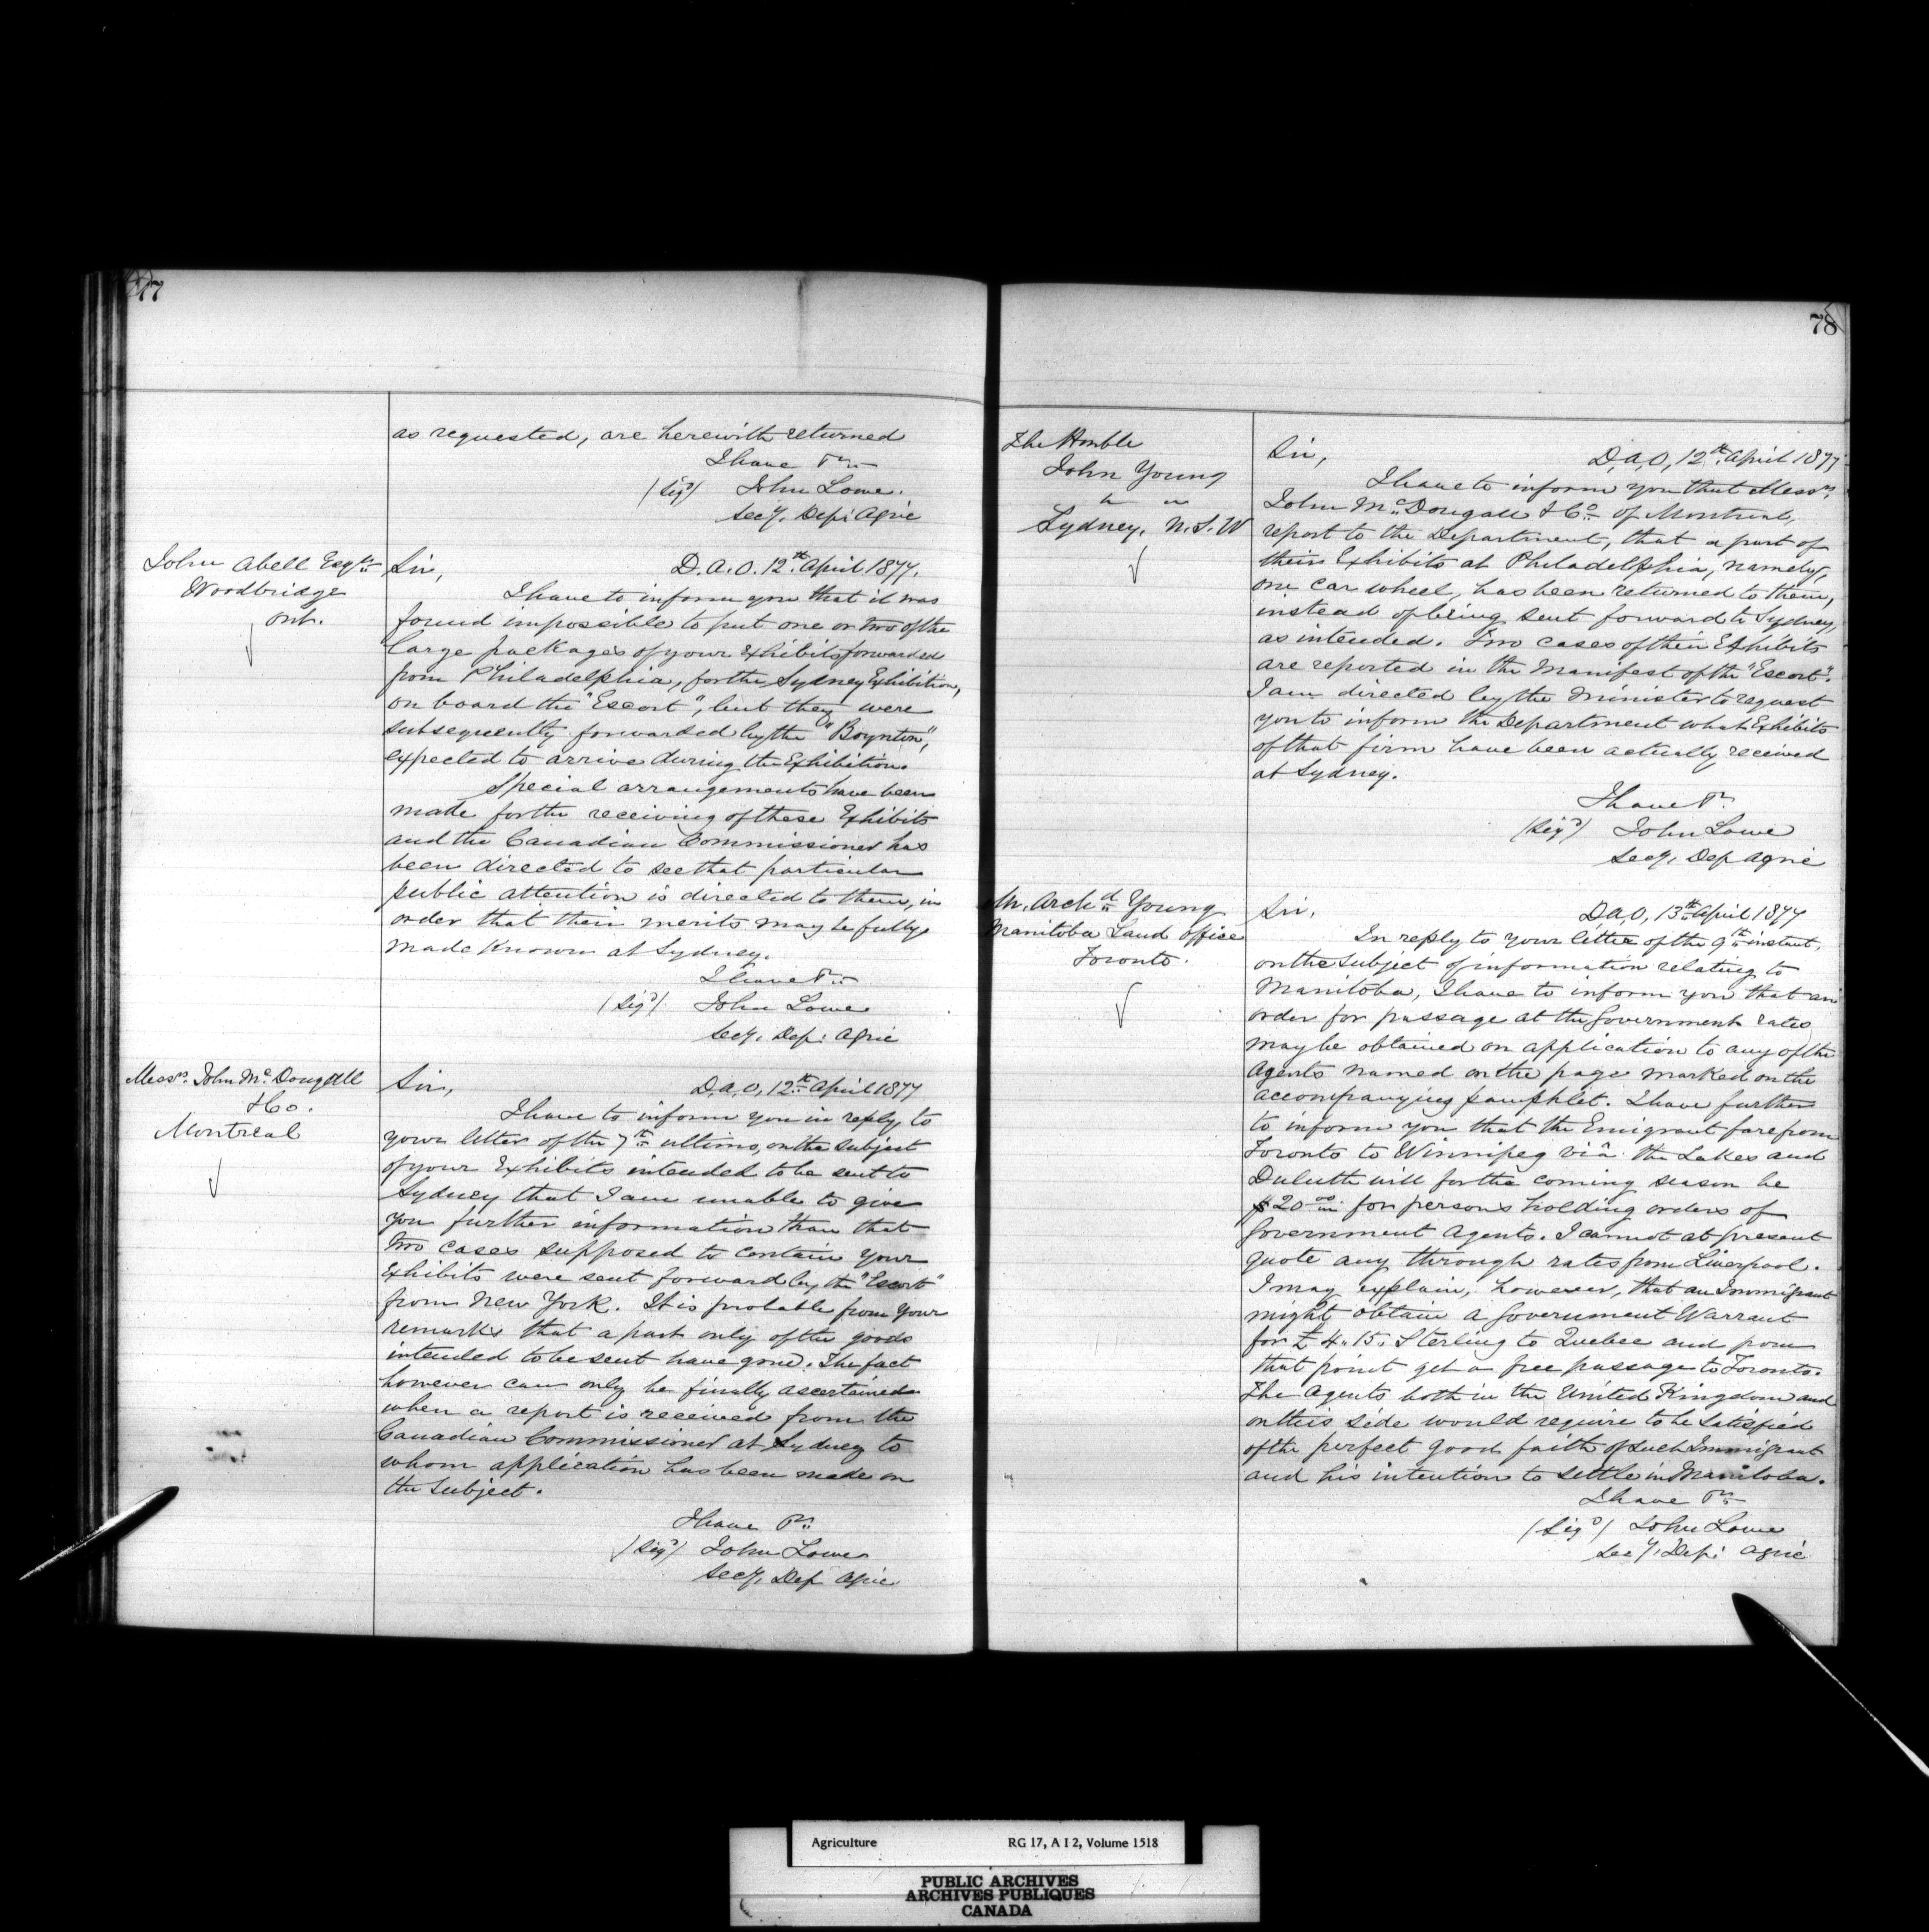 77
as requested, are herewith returned
I have &c
(sigd) John Lowe.
secy. Dept: Agric
John Abell Esqre
Woodbridge
Ont.
Sir,
D.A.O. 12th April 1877.
I have to inform you that it was
found impossible to put one or two of the
large packages of your Exhibits forwarded
from Philadelphia, for the Sydney Exhibition,
on board the "Escort", but they were
subsequently forwarded by the "Boynton",
expected to arrive during the Exhibition.
Special arrangements have been
made for the receiving of these Exhibits
and the Canadian Commissioner has
been directed to see that particular
public attention is directed to them, in
order that their merits may be fully
made known at Sydney.
I have &c
(sigd) John Lowe
secy. Dept: Agric
Messrs. John McDougall
& Co.
Montreal
Sir,
D.A.O, 12th April 1877
I have to inform you in reply to
your letter of the 7th ultimo, on the subject
of your Exhibits intended to be sent to
Sydney that I am unable to give
you further information than that
two cases supposed to contain your
Exhibits were sent forward by the "Escort"
from New York. It is probable from your
remarks that a part only of the goods
intended to be sent have gone. The fact
however can only be finally ascertained
when a report is received from the
Canadian Commissioner at Sydney to
whom application has been made on
the subject.
I have &c
(sigd) John Lowe
secy. Dept Agric
78
The Honble
John Young
" "
Sydney. N.S.W
Sir,
D.A.O, 12th April 1877
I have to inform you that Messrs.
John McDougall & Co. of Montreal,
report to the Department, that a part of
their Exhibits at Philadelphia, namely,
one car wheel, has been returned to them,
instead of being sent forward to Sydney,
as intended. Two cases of their Exhibits
are reported in the Manifest of the "Escort".
I am directed by the Minister to request
you to inform the Department what Exhibits
of that firm have been actually received
at Sydney.
I have &c
(sigd) John Lowe
secy. Dep Agric
Mr. Archd Young
Manitoba Land Office
Toronto.
Sir,
D.A.O, 13th April 1877
In reply to your letter of the 9th instant,
on the subject of information relating to
Manitoba, I have to inform you that an
order for passage at the Government rates
may be obtained on application to any of the
Agents named on the page marked on the
accompanying pamphlet. I have further
to inform you that the Emigrant fare from
Toronto to Winnipeg viâ the Lakes and
Duluth will for the coming season be
$20 00 for persons holding orders of
Government Agents. I cannot at present
quote any through rates from Liverpool.
I may explain, however, that an Immigrant
might obtain a Government Warrant
for £4.15. Sterling to Quebec and from
that point get a free passage to Toronto.
The Agents both in the United Kingdom and
on this side would require to be satisfied
of the perfect good faith of such Immigrant
and his intention to settle in Manitoba.
I have &c
(sigd) John Lowe
secy. Dept: Agric
Agriculture RG 17, A I 2, Volume 1518
PUBLIC ARCHIVES
ARCHIVES PUBLIQUES
CANADA